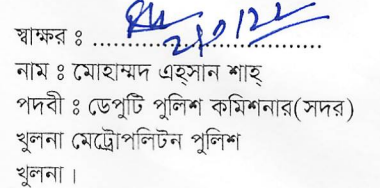 স্বাক্ষর ঃ ....................................
নাম ঃ মোহাম্মদ এহ্সান শাহ্
পদবী ঃ ডেপুটি পুলিশ কমিশনার(সদর)
খুলনা মেট্রোপলিটন পুলিশ
খুলনা।